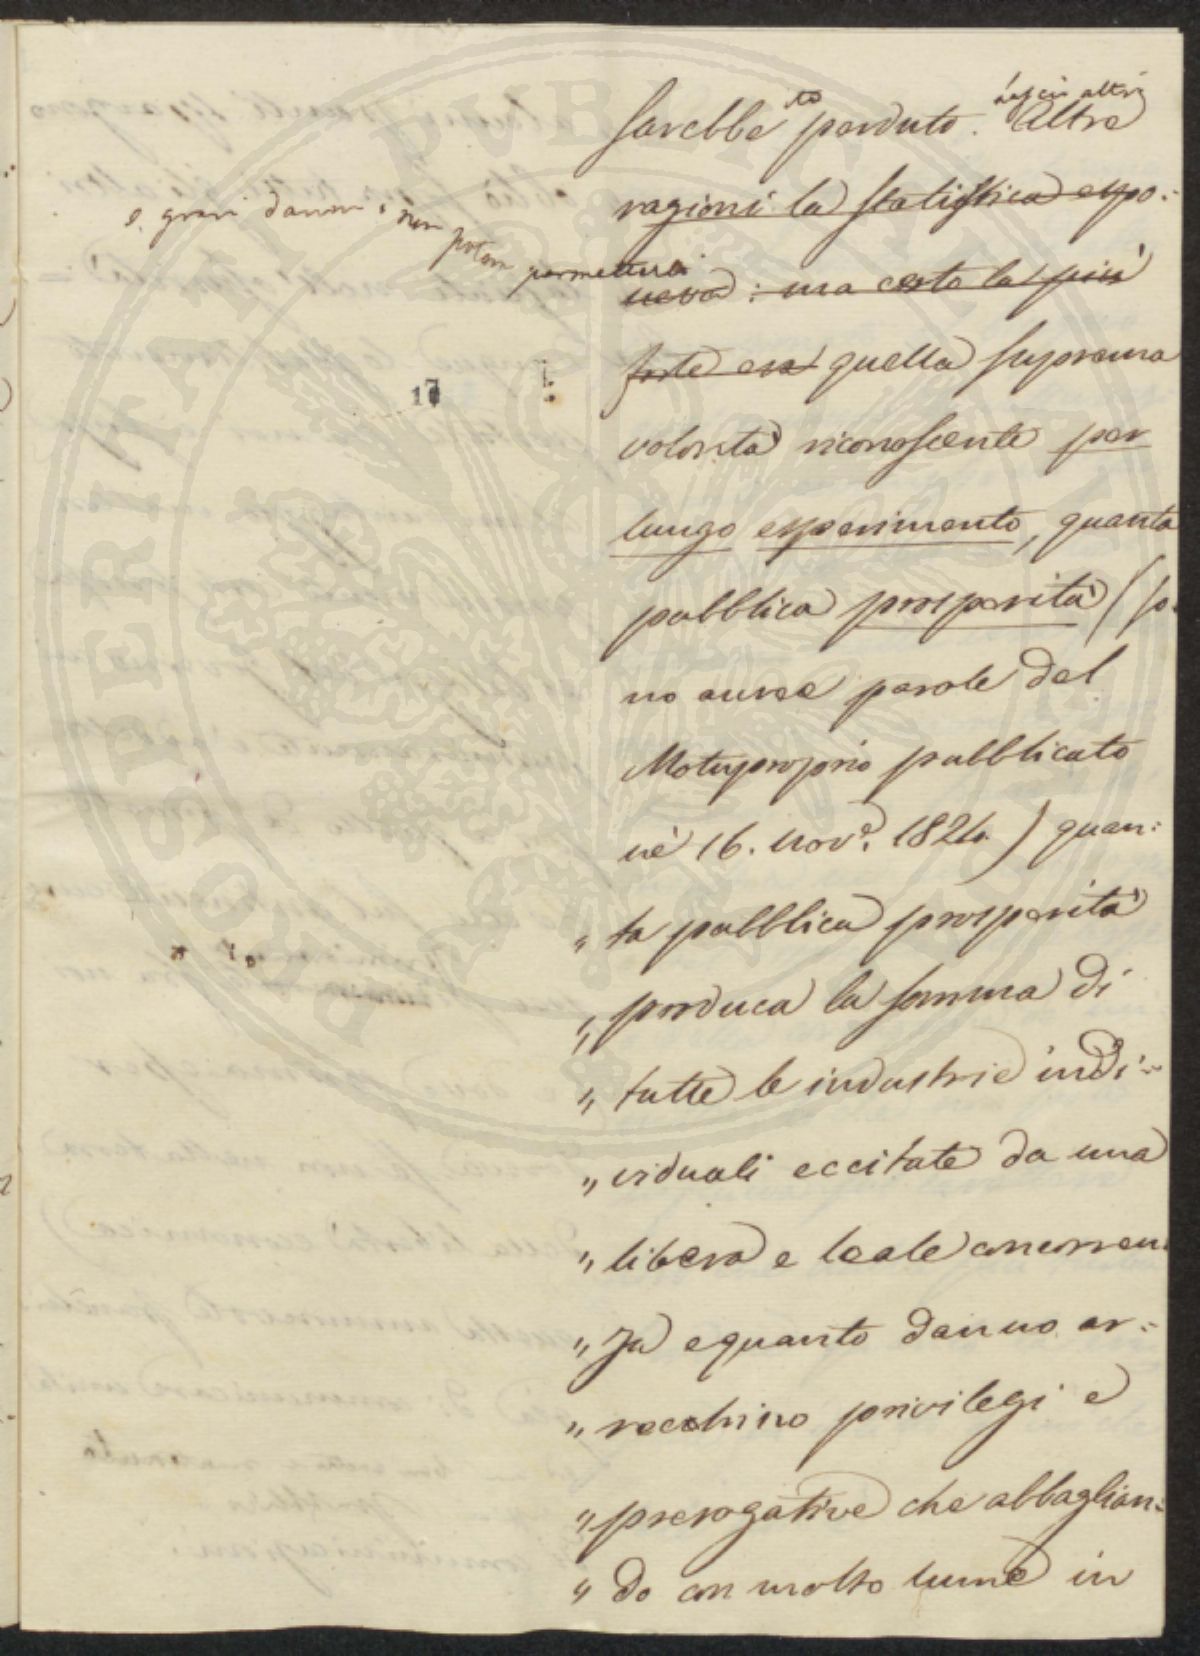 sarebbe perduto. Altre
ragioni la statistica espo:
neva: ma certo la più
forte era quella suprema
volontà riconoscente per
lungo esperimento, quanta
pubblica prosperità (so:
no auree parole del
Motuproprio pubblicato
nè 16. nov.e 1826.) quan:
" ta pubblica prosperità
" produca la somma di
" tutte le industrie indi:
" viduali eccitate da una
" libera e leale concorren:
" za e quanto danno ar:
" recchino privilegi e
" prerogative che abbaglian:
" do con molto lume in
e gravi danni; non potere permettere
17
PROSPERITATI PVBLICAE